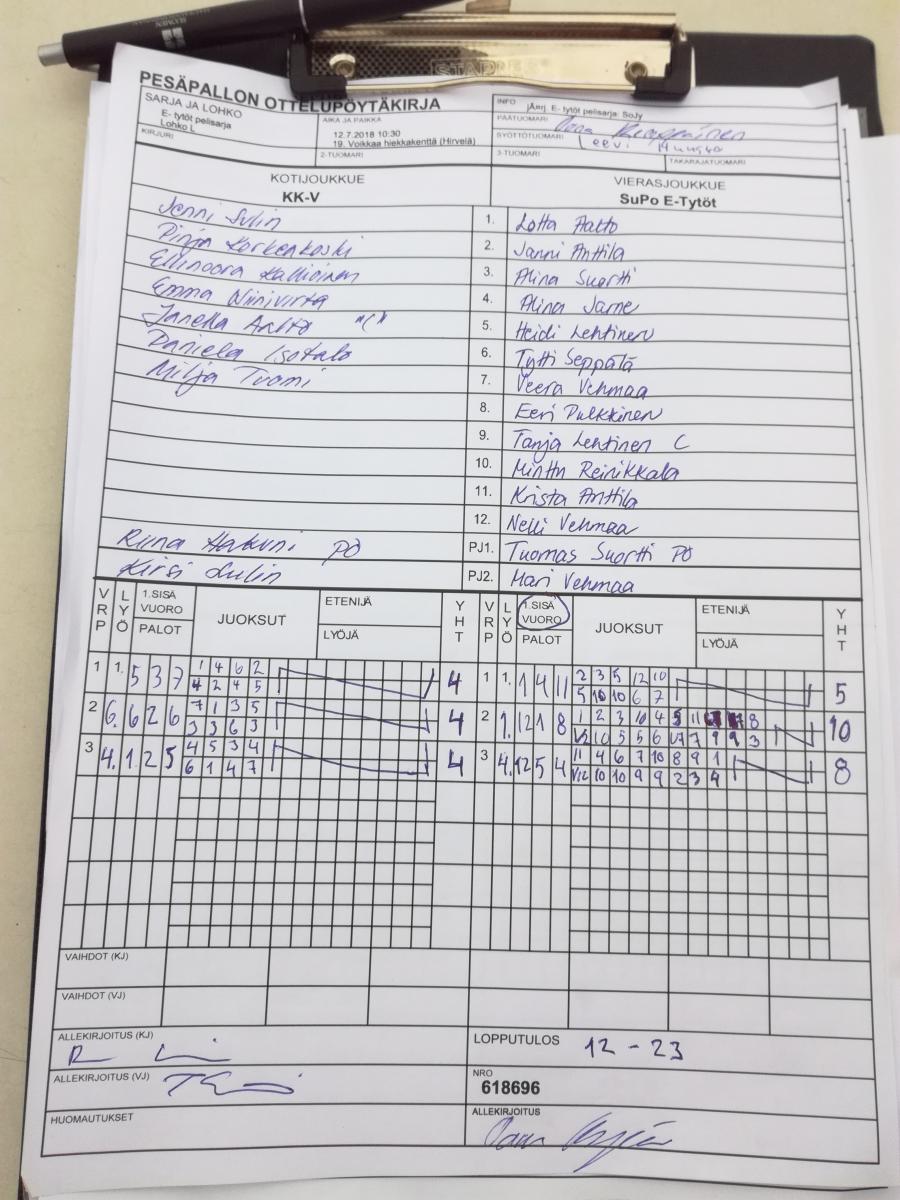 STAPLES
PESÄPALLON OTTELUPÖYTÄKIRJA
SARJA JA LOHKO
E- tytöt pelisarja
Lohko L
AIKA JA PAIKKA
12.7.2018 10:30
19. Voikkaa hiekkakenttä (Hirvelä)
INFO
jÄnj. E- tytöt pelisarja: SoJy
PÄÄTUOMARI
SYÖTTÖTUOMARI Eevi
KIRJURI
2-TUOMARI
3-TUOMARI
TAKARAJATUOMARI
KOTIJOUKKUE
KK-V
VIERASJOUKKUE
SuPo E-Tytöt
Jenni Sulin 1. Lotta Aalto
Pinja Korkeakoski 2. Janni Anttila
Ellinoora Kallioinen 3. Alina Suortti
Emma Niinivirta 4. Alina Jarne
Janella Aalto "C" 5. Heidi Lehtinen
Daniela Isotalo 6. Tytti Seppälä
Milja Tuomi 7. Veera Vehmaa
8. Eeri Pulkkinen
9. Tanja Lehtinen C
10. Minttu Reinikkala
11. Krista Anttila
12. Nelli Vehmaa
Riina PÖ PJ1. Tuomas Suortti PÖ
Kirsi Sulin PJ2. Mari Vehmaa
VRP LYÖ 1.SISÄ VUORO PALOT JUOKSUT ETENIJÄ LYÖJÄ YHT VRP LYÖ 1.SISÄ VUORO PALOT JUOKSUT ETENIJÄ LYÖJÄ YHT
1 1. 5 3 7 1 4 6 2 4 1 1. 1 4 11 2 3 5 12 10 5
4 2 4 5 5 10 10 6 7
2 6. 6 2 6 7 1 3 5 4 2 1. 12 1 8 1 2 3 10 4 5 11 8 10
3 3 6 3 10 5 5 6 7 9 9 3
3 4. 1 2 5 4 5 3 4 4 3 4. 12 5 4 11 4 6 7 10 8 9 1 8
6 1 4 7 V12 10 10 9 9 2 3 4
VAIHDOT (KJ)
VAIHDOT (VJ)
ALLEKIRJOITUS (KJ)
LOPPUTULOS 12 - 23
ALLEKIRJOITUS (VJ)
NRO
618696
HUOMAUTUKSET
ALLEKIRJOITUS